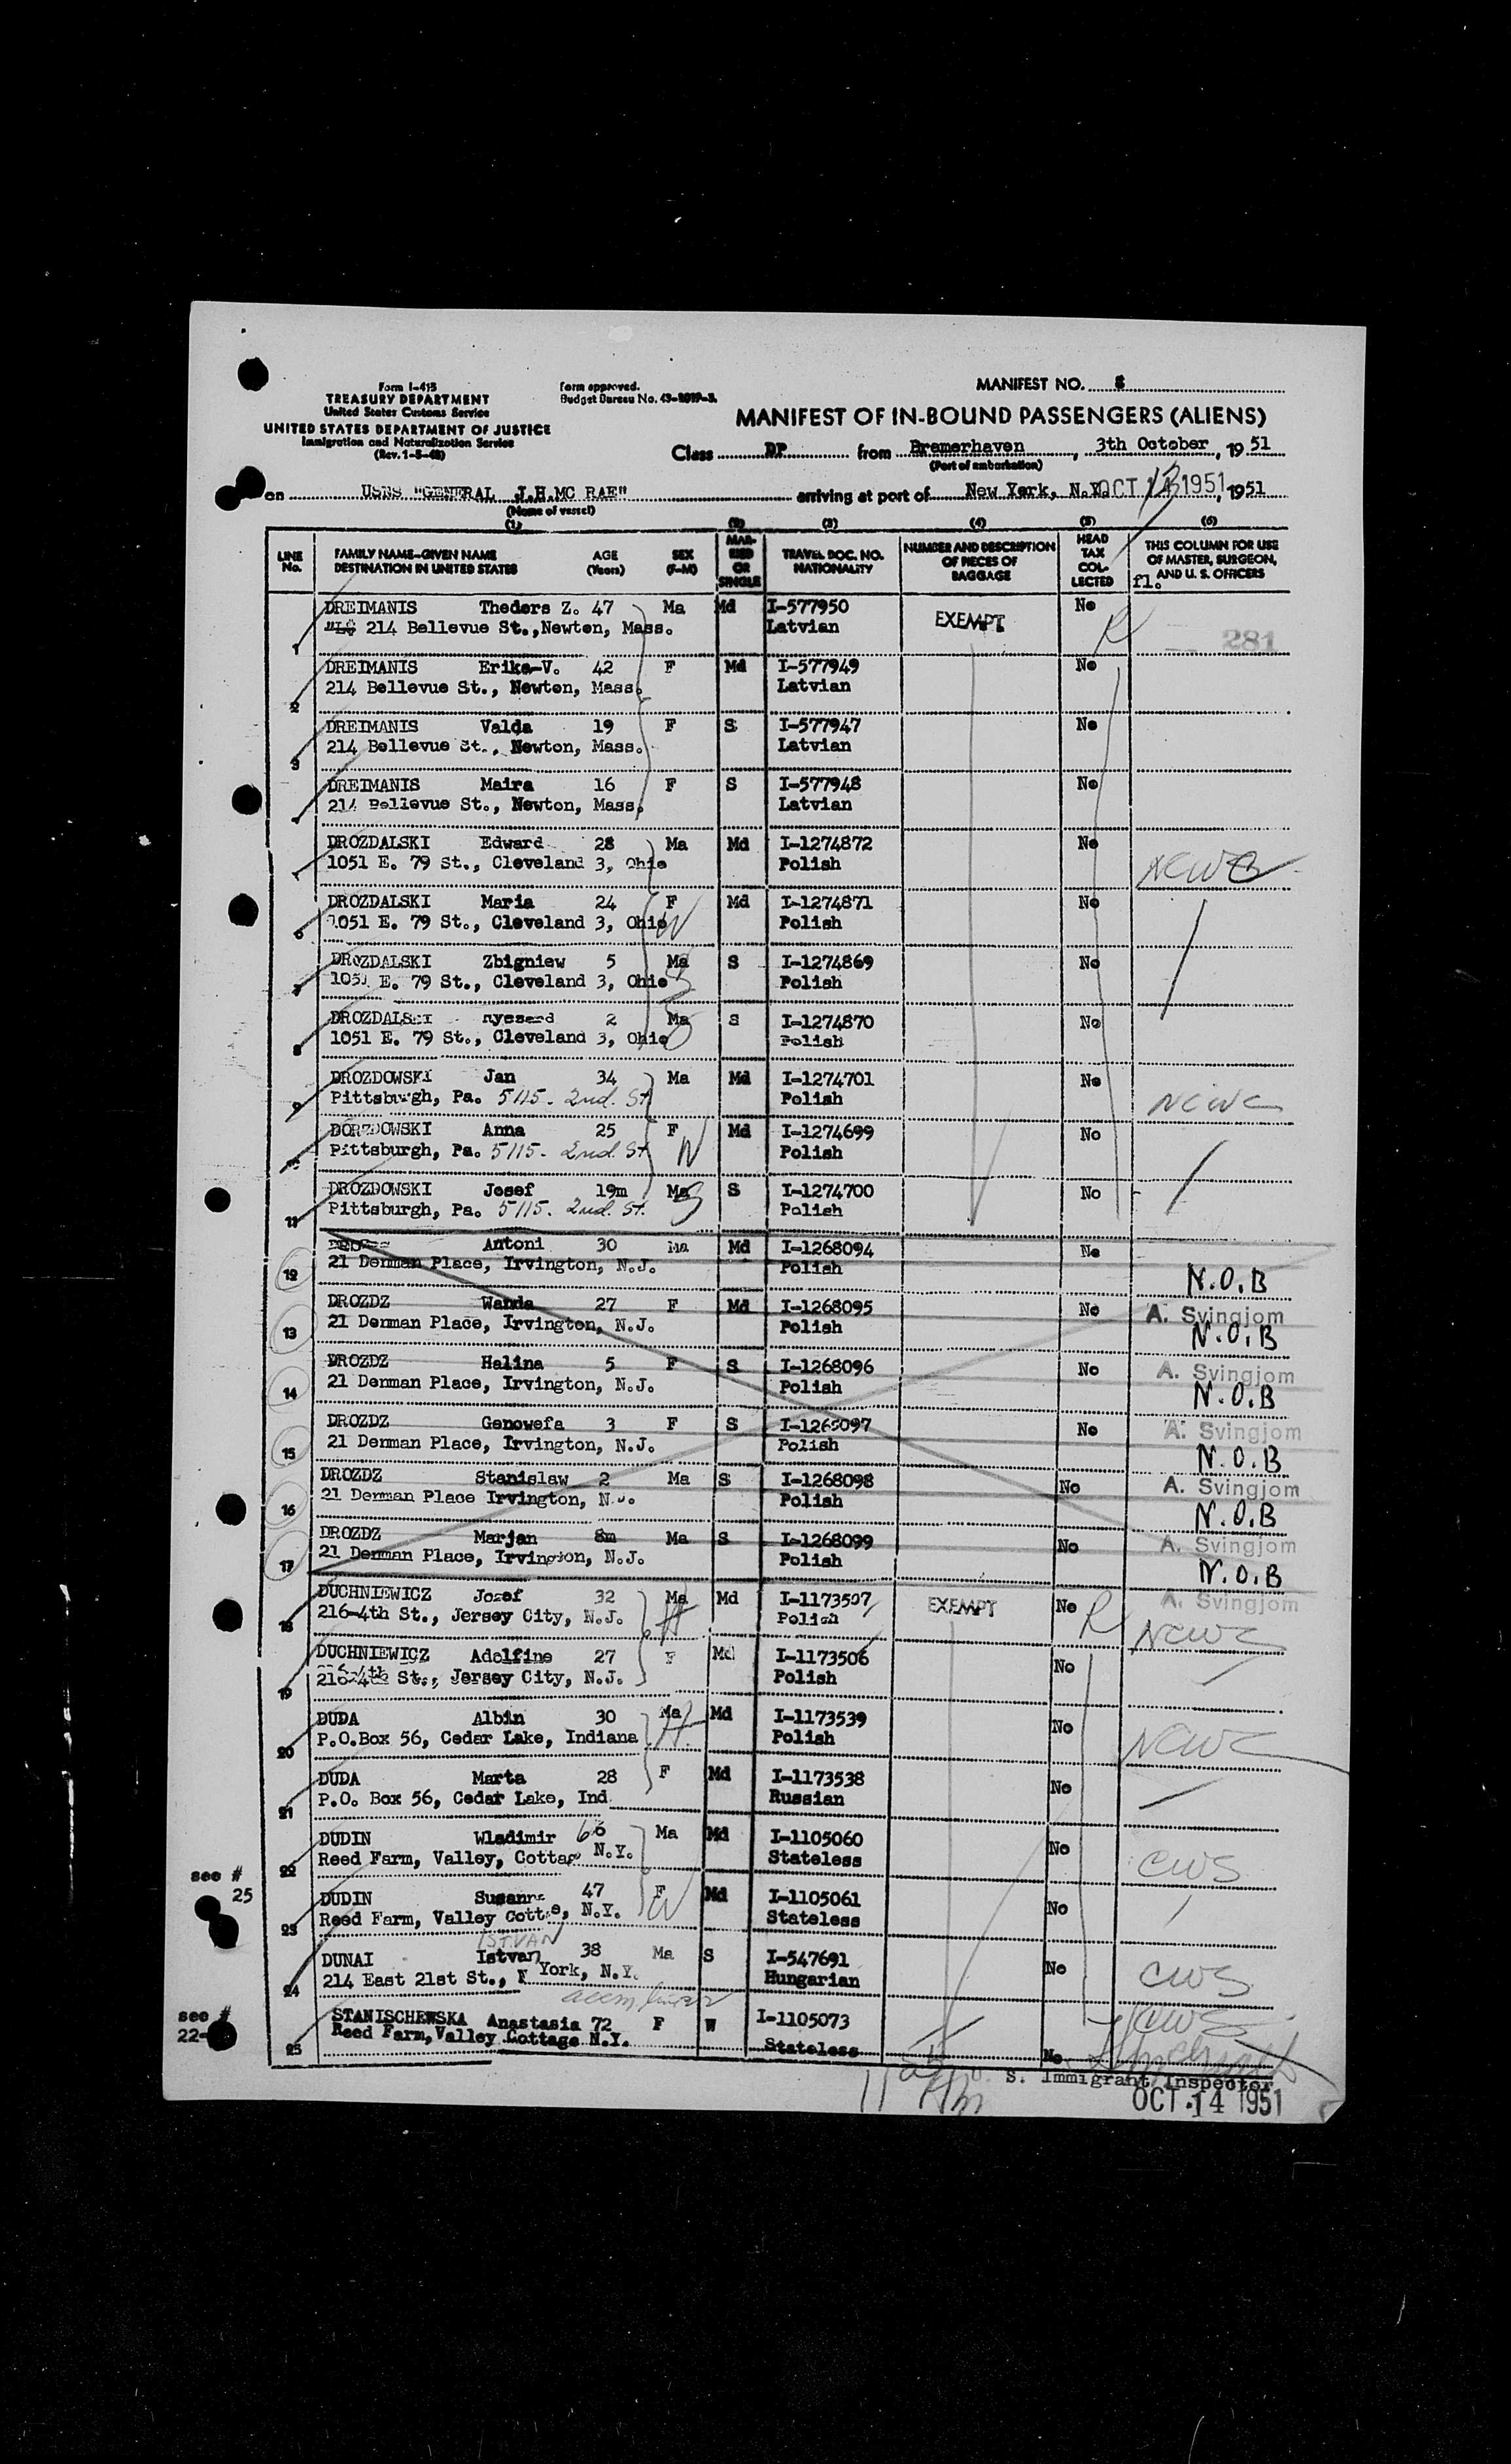 Form I-415
TREASURY DEPARTMENT
United States Customs Service
UNITED STATES DEPARTMENT OF JUSTICE
Immigration and Naturalization Service
(Rev. 1-5-48)
Form approved.
Budget Bureau No.
MANIFEST NO. 8
MANIFEST OF IN-BOUND PASSENGERS (ALIENS)
Class DP from Bremerhaven, 3th October, 1951
(Port of embarkation)
on USNS "GENERAL J.H.MC RAE" arriving at port of New York, N.Y. OCT 1951, 1951
(Name of vessel)
(1) (2) (3) (4) (5) (6)
LINE No. FAMILY NAME—GIVEN NAME DESTINATION IN UNITED STATES AGE (Years) SEX (F-M) MARRIED OR SINGLE TRAVEL DOC. NO. NATIONALITY NUMBER AND DESCRIPTION OF PIECES OF BAGGAGE HEAD TAX COLLECTED THIS COLUMN FOR USE OF MASTER, SURGEON, AND U. S. OFFICERS
fl.
1 DREIMANIS Theders Z. 47 Ma Md I-577950 EXEMPT No R 281
214 Bellevue St.,Newton, Mass. Latvian
2 DREIMANIS Erika-V. 42 F Md I-577949 No
214 Bellevue St., Newton, Mass. Latvian
3 DREIMANIS Valda 19 F S I-577947 No
214 Bellevue St., Newton, Mass. Latvian
4 DREIMANIS Maira 16 F S I-577948 No
214 Bellevue St., Newton, Mass. Latvian
DROZDALSKI Edward 28 Ma Md I-1274872 No
1051 E. 79 St., Cleveland 3, Ohio Polish NCWC
6 DROZDALSKI Maria 24 F Md I-1274871 No
1051 E. 79 St., Cleveland 3, Ohio W Polish
7 DROZDALSKI Zbigniew 5 Ma S I-1274869 No
1051 E. 79 St., Cleveland 3, Ohio S Polish
8 DROZDALSKI Ryszard 2 Ma S I-1274870 No
1051 E. 79 St., Cleveland 3, Ohio S Polish
9 DROZDOWSKI Jan 34 Ma Md I-1274701 No
Pittsburgh, Pa. 5115. 2nd. St Polish NCWC
10 DORZDOWSKI Anna 25 F Md I-1274699 No
Pittsburgh, Pa. 5115. 2nd. St W Polish
11 DROZDOWSKI Josef 19m Ma S I-1274700 No
Pittsburgh, Pa. 5115. 2nd. St. S Polish
12 Antoni 30 Ma Md I-1268094 No
21 Denman Place, Irvington, N.J. Polish N.O.B
13 DROZDZ Wanda 27 F Md I-1268095 No A. Svingjom
21 Denman Place, Irvington, N.J. Polish N.O.B
14 DROZDZ Halina 5 F S I-1268096 No A. Svingjom
21 Denman Place, Irvington, N.J. Polish N.O.B
15 DROZDZ Genowefa 3 F S I-1268097 No A. Svingjom
21 Denman Place, Irvington, N.J. Polish N.O.B
16 DROZDZ Stanislaw 2 Ma S I-1268098 No A. Svingjom
21 Denman Place Irvington, N.J. Polish N.O.B
17 DROZDZ Marjan 8m Ma S I-1268099 No A. Svingjom
21 Denman Place, Irvington, N.J. Polish N.O.B
18 DUCHNIEWICZ Jozef 32 Ma Md I-1173507 EXEMPT No R A. Svingjom
216-4th St., Jersey City, N.J. H Polish NCWC
19 DUCHNIEWICZ Adolfine 27 F Md I-1173506 No
216-4th St., Jersey City, N.J. Polish
20 DUDA Albin 30 Ma Md I-1173539 No
P.O.Box 56, Cedar Lake, Indiana H. Polish NCWC
21 DUDA Marta 28 F Md I-1173538 No
P.O. Box 56, Cedar Lake, Ind. Russian
22 DUDIN Wladimir Ma Md I-1105060 No
Reed Farm, Valley, Cottag N.Y. Stateless CWS
see # 25
23 DUDIN Susanne 47 F Md I-1105061 No
Reed Farm, Valley Cotte, N.Y. W Stateless
ISTVAN
24 DUNAI Istvan 38 Ma S I-547691 No
214 East 21st St., N York, N.Y. Hungarian CWS
see # 22-
25 STANISCHEWSKA Anastasia 72 F W I-1105073 CWS
Reed Farm,Valley Cottage N.Y. Stateless No
U. S. Immigrant Inspector
OCT 14 1951